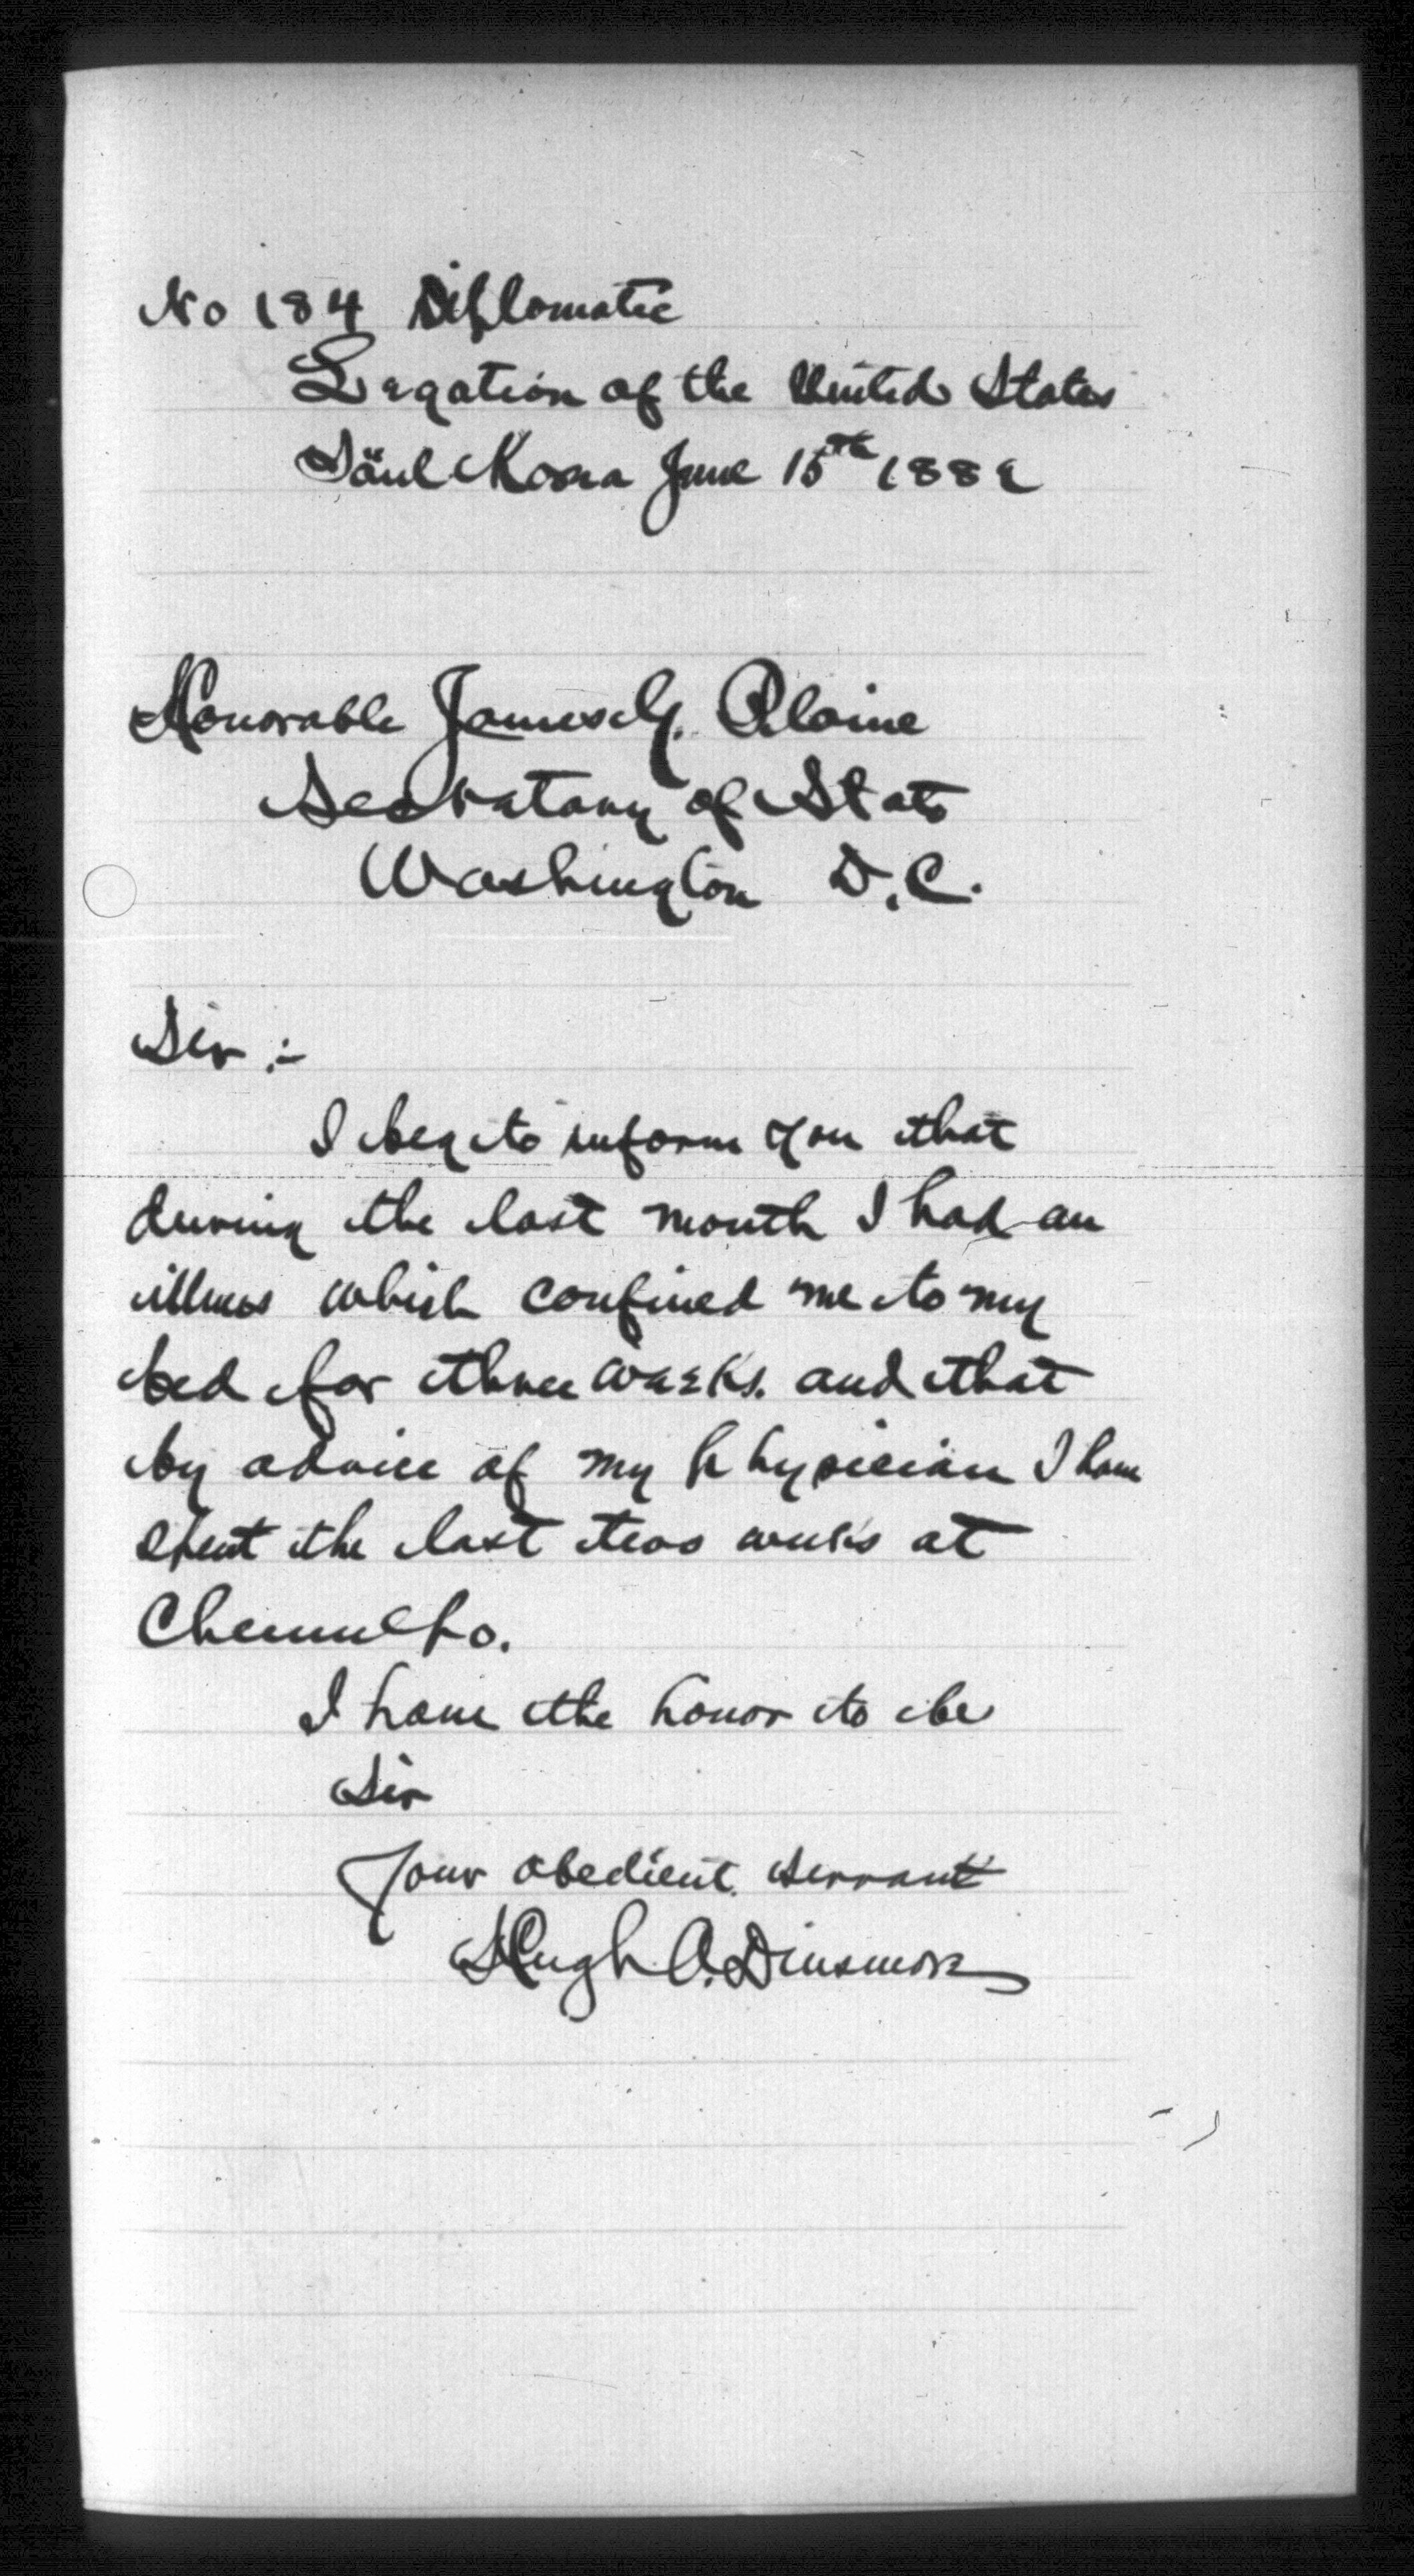 No 184 Diplomatic
Legation of the United States
Söul Korea June 15th 1889
Honorable James G. Blaine
Secretary of State
Washington D.C.
Sir :-
I beg to inform you that
during the last month I had an
illness which confined me to my
bed for three weeks. and that
by advice of my physician I have
spent the last two weeks at
Chemulpo.
I have the honor to be
Sir
Your obedient servant
Hugh A. Dinsmore